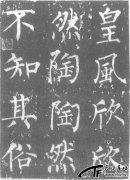 皇風欣欣
然陶陶然
不知其俗